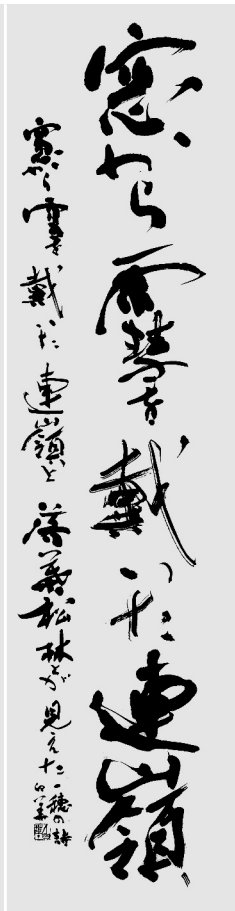 窓から雪を戴いた連嶺
窓から雪を戴いた連嶺と落葉松林とが見えた 一穂の詩